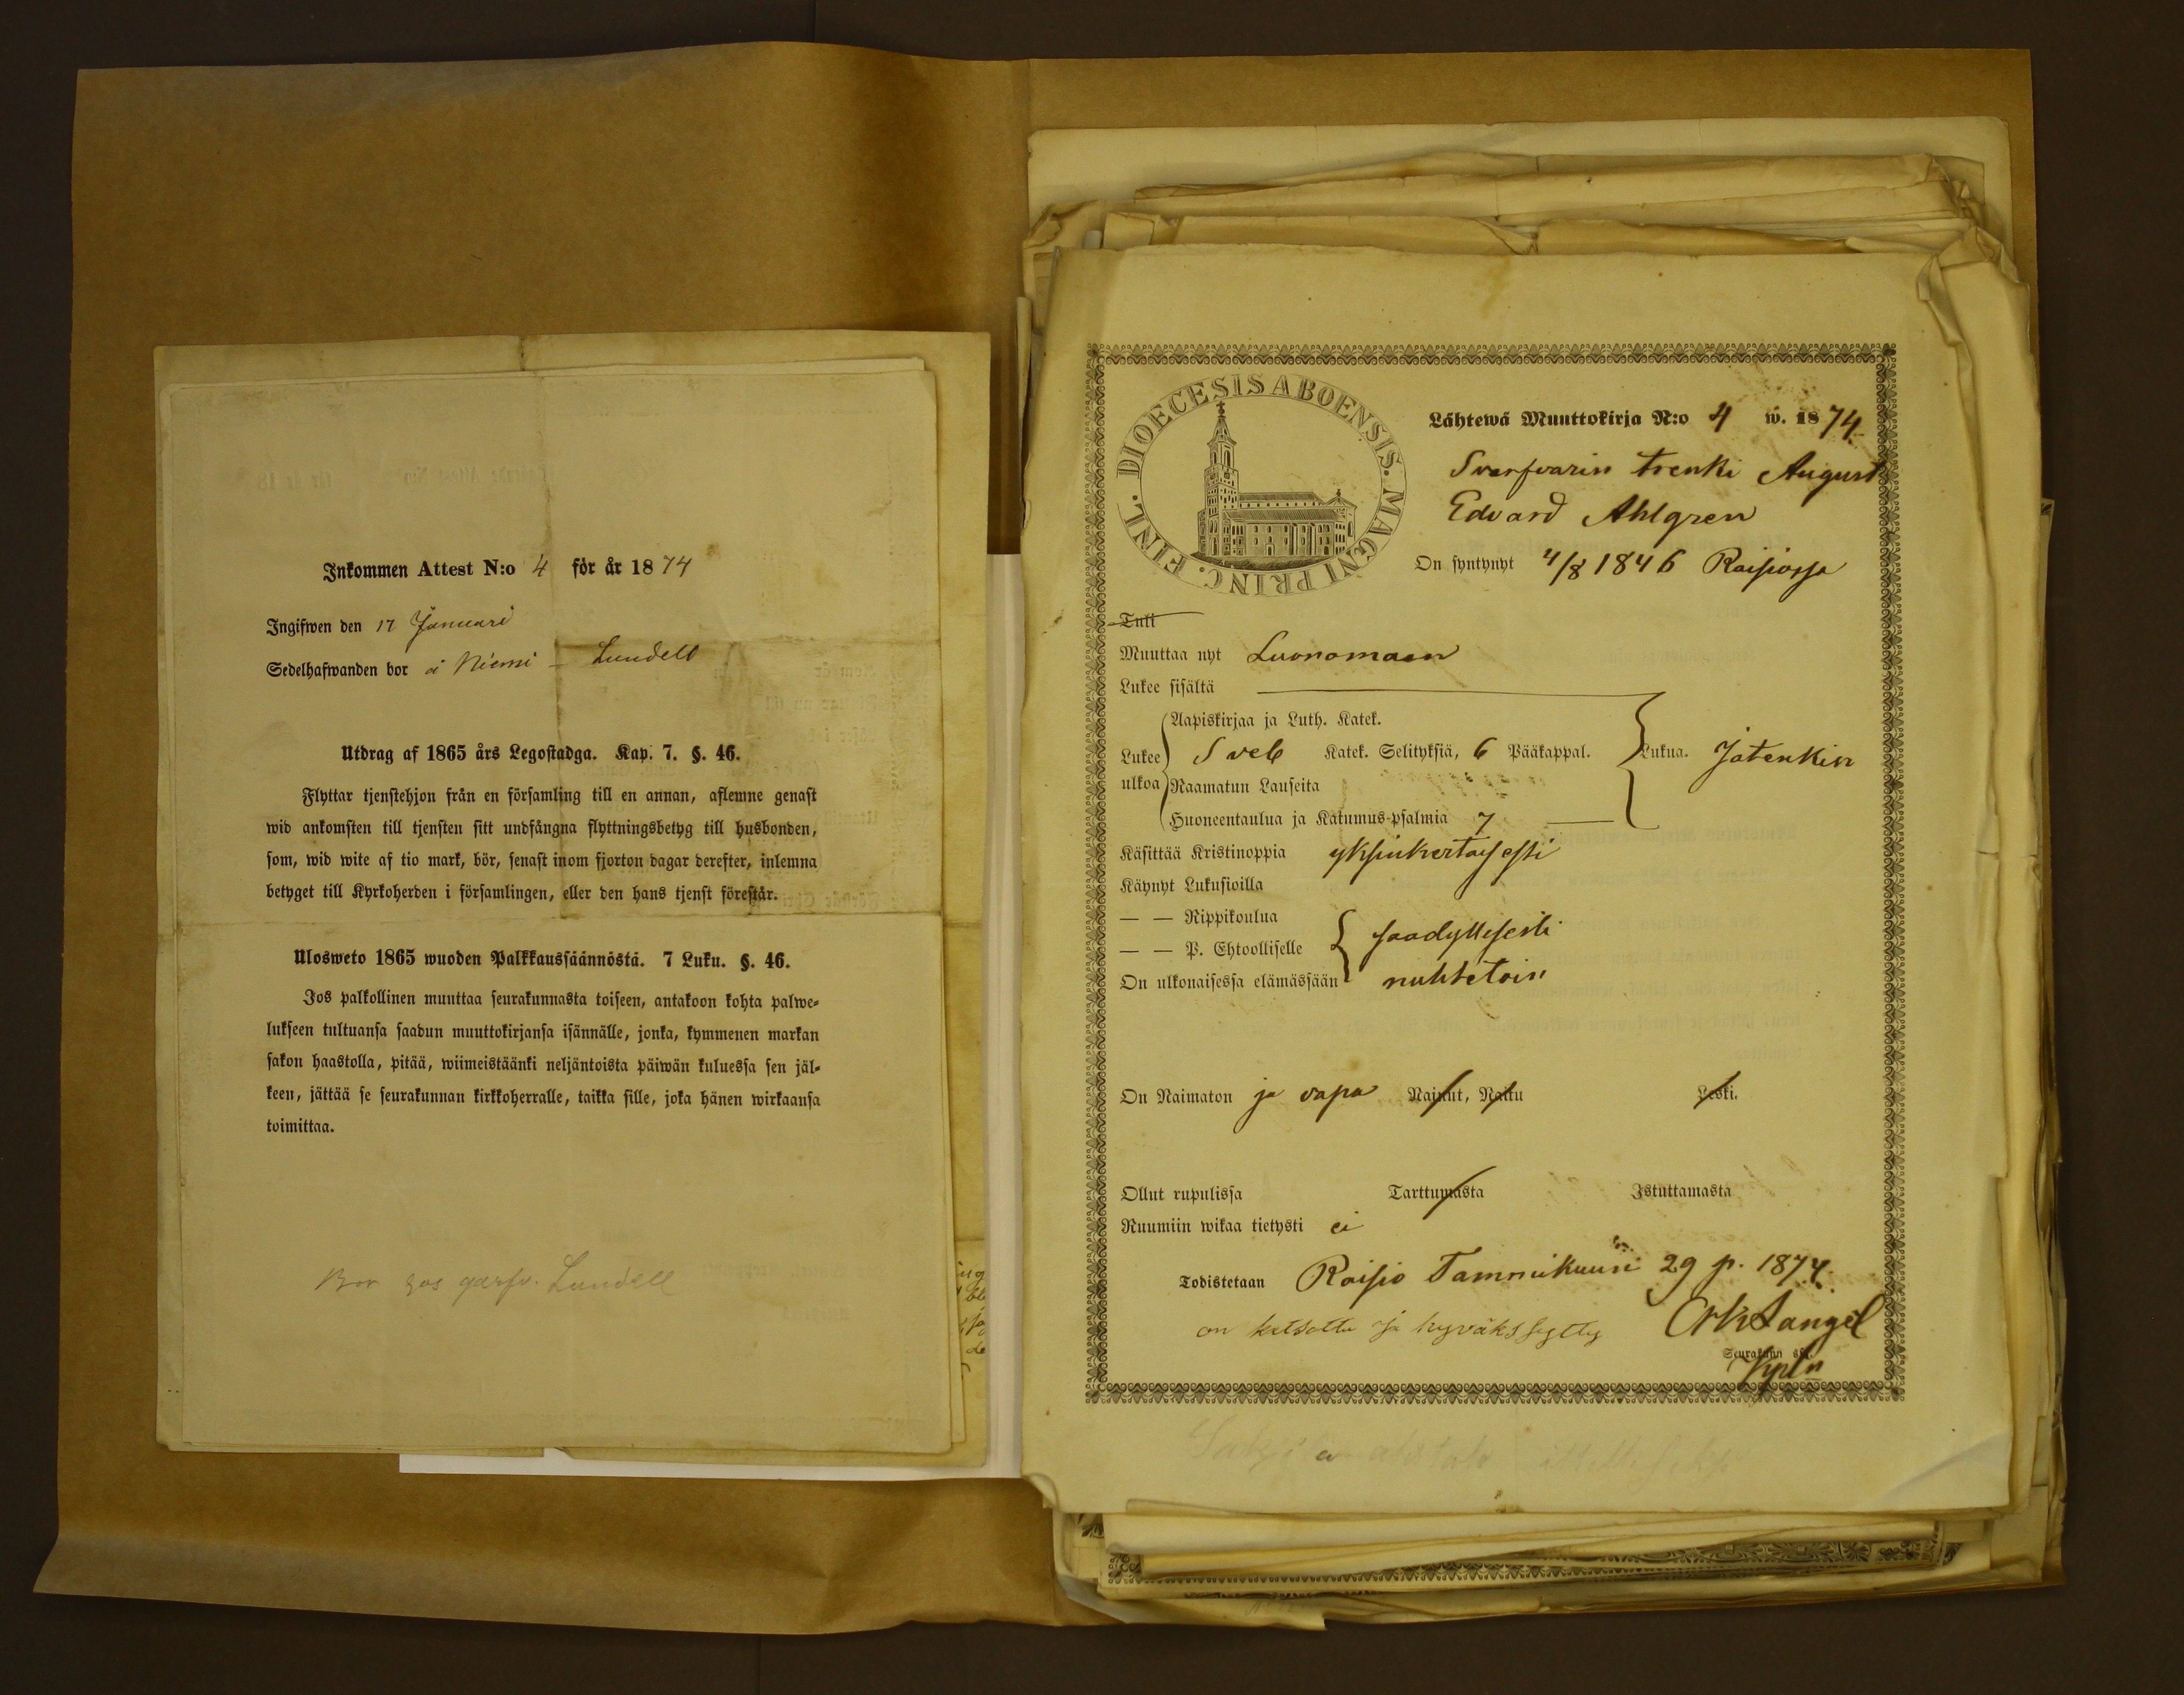 Inkommen Attest N:o 4 för år 1874
Ingifwen den 17 Januari
Sedelhafwanden bor å Niemi - Lundell
Utdrag af 1865 års Legostadga. Kap. 7. §. 46.
Flyttar tjenstehjon från en församling till en annan, aflemne genast
wid ankomsten till tjensten sitt undfångna flyttningsbetyg till husbonden,
som, wid wite af tio mark, bör, senast inom fjorton dagar derefter, inlemna
betyget till Kyrkoherden i församlingen, eller den hans tjenst förestår.
Ulosweto 1865 wuoden Palkkaussäännöstä. 7 Luku. §. 46.
Jos palkollinen muuttaa seurakunnasta toiseen, antakoon kohta palwe-
lukseen tultuansa saadun muuttokirjansa isännälle, jonka, kymmenen markan
sakon haastolla, pitää, wiimeistäänki neljäntoista päiwän kuluessa sen jäl-
keen, jättää se seurakunnan kirkkoherralle, taikka sille, joka hänen wirkaansa
toimittaa.
Bor hos garfv. Lundell
DIOECESIS ABOENSIS. MAGNI PRINC. FINL.
Lähtewä Muuttokirja N:o 4 w. 1874
Svarfvarin trenki August
Edvard Ahlgren
On syntynyt 4/8 1846 Raisiossa
Tull
Muuttaa nyt Luonomaan
Lukee sisältä
Aapiskirjaa ja Luth. Katek.
Lukee ulkoa Sveb Katek. Selityksiä, 6 Pääkappal. Lukua. Jotenkin
Raamatun Lauseita
Huoneentaulua ja Katumus-psalmia 7
Käsittää Kristinoppia yksinkertaisesti
Käynyt Lukusioilla
— — Rippikoulua
— — P. Ehtoolliselle saadyllisesti
On ulkonaisessa elämässään nuhtetoin
On Naimaton ja vapa Nainut, Naitu Leski.
Ollut rupulissa Tarttumasta Istuttamasta
Ruumiin wikaa tietysti ei
Todistetaan Raisio Tammikuun 29 p. 1874.
on katsottu ja hyväksytty
Seurakunn
Kpln